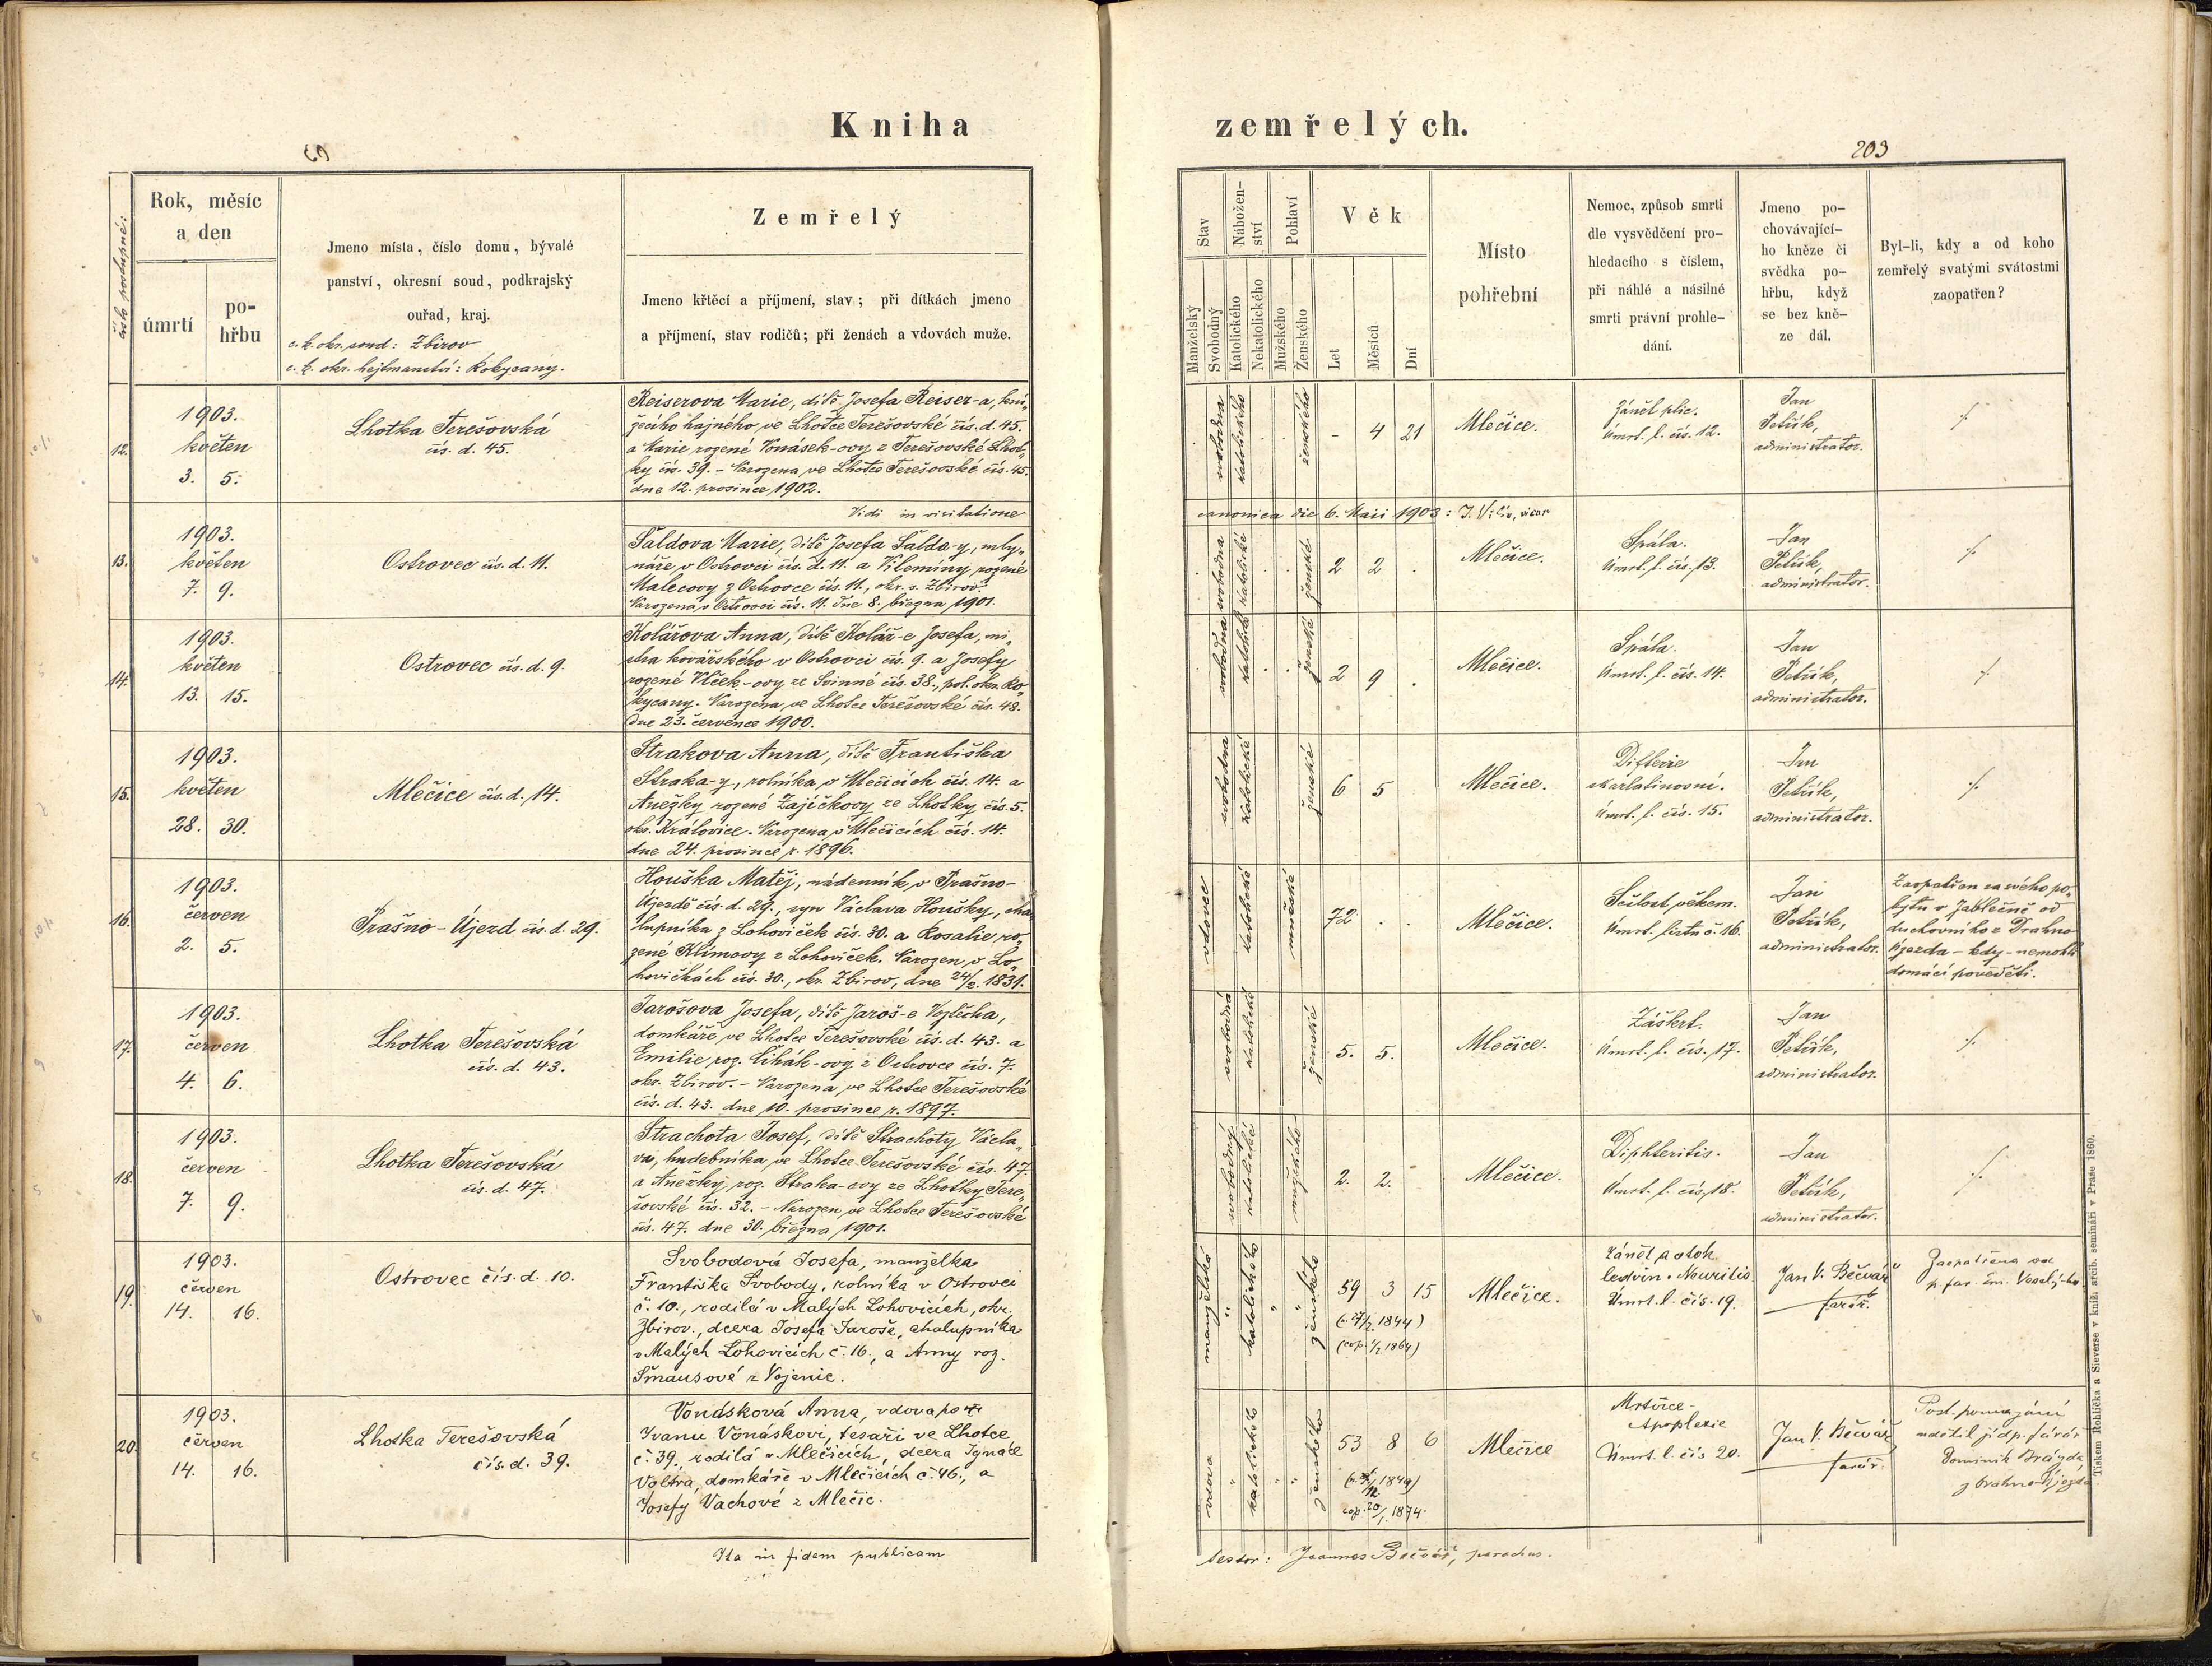 Kniha
zemřelých.
203
číslo postupné:
Rok, měsíc
a den
úmrtí
po-
hřbu
Jmeno místa, číslo domu, bývalé
panství, okresní soud, podkrajský
ouřad, kraj.
c. k. okr. soud: Zbirov
c. k. okr. hejtmanství: Rokycany.
Zemřelý
Jmeno křtěcí a příjmení, stav; při dítkách jmeno
a příjmení, stav rodičů; při ženách a vdovách muže.
Stav
Nábožen-
ství
Pohlaví
Věk
Manželský
Svobodný
Katolického
Nekatolického
Mužského
Ženského
Let
Měsíců
Dní
Místo
pohřební
Nemoc, způsob smrti
dle vysvědčení pro-
hledacího s číslem,
při náhlé a násilné
smrti právní prohle-
dání.
Jmeno po-
chovávající-
ho kněze či
svědka po-
hřbu, když
se bez kně-
ze dál.
Byl-li, kdy a od koho
zemřelý svatými svátostmi
zaopatřen?
12.
1903.
květen
3. 5.
Lhotka Terešovská
čís. d. 45.
Reiserova Marie, dítě Josefa Reiser-a, kní-
žecího hajného, ve Lhotce Terešovské čís. d. 45.
a Marie rozené Vonásek-ovy z Terešovské Lhot-
ky čís. 39. – Narozena ve Lhotce Terešovské čís. 45.
dne 12. prosince 1902.
svobodna
katolického
ženského
- 4 21
Mlečice.
Zánět plic.
Úmrt. l. čís. 12.
Jan
Petřík,
administrator.
Vidi in visitatione
canonica die 6. Maii 1903: J. , vicar
13.
1903.
květen
7. 9.
Ostrovec čís. d. 11.
Šaldova Marie, dítě Josefa Šalda-y, mly-
náře v Ostrovci čís. d. 11. a Vilemíny rozené
Malecovy z Ostrovce čís. 11., okr. s. Zbirov.
Narozena v Ostrovci čís. 11. dne 8. března 1901.
svobodna
katolické
ženské
2 2 .
Mlečice.
Spála.
Úmrt. l. čís. 13.
Jan
Petřík,
administrator.
14.
1903.
květen
13. 15.
Ostrovec čís. d. 9.
Kolářova Anna, dítě Kolář-e Josefa, mi-
stra kovářského v Ostrovci čís. 9. a Josefy
rozené Vlček-ovy ze Svinné čís. 38., pol. okr. Ro-
kycany. Narozena ve Lhotce Terešovské čís. 48.
dne 23. července 1900.
svobodna
katolické
ženské
2 9 .
Mlečice.
Spála.
Úmrt. l. čís. 14.
Jan
Petřík,
administrator.
15.
1903.
květen
28. 30.
Mlečice čís. d. 14.
Strakova Anna, dítě Františka
Straka-y, rolníka v Mlečicích čís. 14. a
Anežky rozené Zajíčkovy ze Lhotky čís. 5.
okr. Královice. Narozena v Mlečicích čís. 14.
dne 24. prosince r. 1896.
svobodna
katolické
ženské
6 5
Mlečice.
Difterie
skarlatinosní.
Úmrt. l. čís. 15.
Jan
Petřík,
administrator.
16.
1903.
červen
2. 5.
Prašno-Újezd čís. d. 29.
Houška Matěj, nádenník v Prašno-
Újezdě čís. d. 29., syn Václava Houšky, cha-
lupníka z Lohoviček čís. 30. a Rosalie ro-
zené Klímovy z Lohoviček. Narozen v Lo-
hovičkách čís. 30., okr. Zbirov, dne 24/2. 1831.
vdovec
katolické
mužské
72 . .
Mlečice.
Sešlost věkem.
Úmrt. listu č. 16.
Jan
Petřík,
administrator.
Zaopatřen za svého po-
bytu v Jablečně od
duchovního z Drahno-
Újezda – kdy – nemohli
domácí pověděti.
17.
1903.
červen
4. 6.
Lhotka Terešovská
čís. d. 43.
Jarošova Josefa, dítě Jaroš-e Vojtěcha,
domkáře ve Lhotce Terešovské čís. d. 43. a
Emilie roz. Cihák-ovy z Ostrovce čís. 7.
okr. Zbirov. – Narozena ve Lhotce Terešovské
čís. d. 43. dne 10. prosince r. 1897.
svobodná
katolické
ženské
5. 5.
Mlečice.
Záškrt.
Úmrt. l. čís. 17.
Jan
Petřík,
administrator.
18.
1903.
červen
7. 9.
Lhotka Terešovská
čís. d. 47.
Strachota Josef, dítě Strachoty Václa-
va, hudebníka ve Lhotce Terešovské čís. 47.
a Anežky roz. Straka-ovy ze Lhotky Tere-
šovské čís. 32. – Narozen ve Lhotce Terešovské
čís. 47. dne 30. března 1901.
svobodný
katolické
mužského
2. 2.
Mlečice.
Diphteritis.
Úmrt. l. čís. 18.
Jan
Petřík,
administrator.
19.
1903.
červen
14. 16.
Ostrovec čís. d. 10.
Svobodová Josefa, manželka
Františka Svobody, rolníka v Ostrovci
č. 10., rodilá v Malých Lohovicích, okr.
Zbirov., dcera Josefa Jaroše, chalupníka
v Malých Lohovicích č. 16., a Anny roz.
Šmausové z Vojenic.
manželská
katolického
ženského
59 3 15
1844)
1864)
Mlečice.
Zánět a otok
ledvin. Neuritis
Úmrt. l. čís. 19.
Jan V. Bečvář
farář.
Zaopatřena od
p. far. em. Veselý-ho
20.
1903.
červen
14. 16.
Lhotka Terešovská
čís. d. 39.
Vonásková Anna, vdova po
Ivanu Vonáskovi, tesaři ve Lhotce
č. 39., rodilá v Mlečicích, dcera Ignáce
Voltra, domkáře v Mlečicích č. 46., a
Josefy Vachové z Mlečic.
vdova
katolického
ženského
53 8 6
1849)
cop. 20/1. 1874.
Mlečice
Mrtvice –
Apoplexie
Úmrt. l. čís 20.
Jan V. Bečvář
farář.
Posl. pomazání
udělil jí dp. farář
Dominik
z Drahno-Újezda.
Ita in fidem publicam
testor: Joannes Bečvář, parochus.
Tiskem Rohlíčka a Sieverse v kníž. arcib. semináři v Praze 1860.